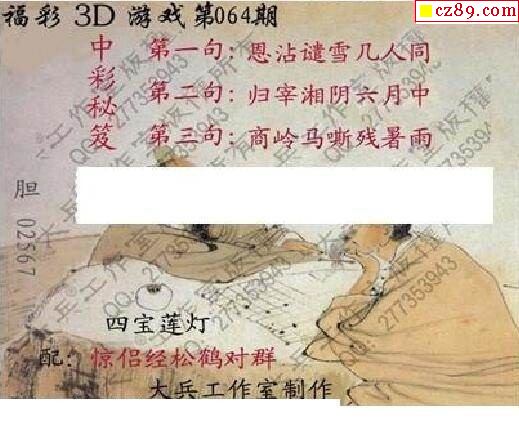 福彩 3D 游戏第064期
cz89.com
中彩秘笈
第一句：恩沾谴雪几人同
第二句：归宰湘阴六月中
第三句：商岭马嘶残暑雨
胆 02567
四宝莲灯
配：惊侣经松鹤对群
大兵工作室制作
大兵工作室版权所有
QQ:277353943